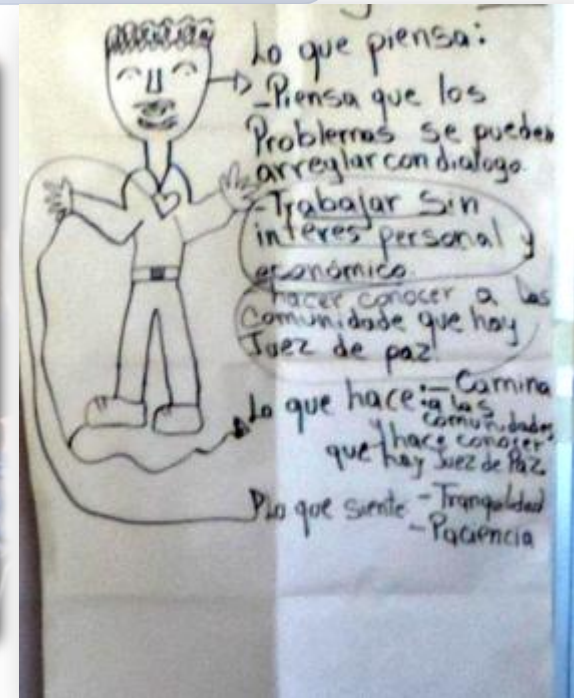 Lo que piensa:
-Piensa que los
Problemas se pueden
arreglar con dialogo.
-Trabajar sin
interes personal y
económico.
hacer conocer a las
Comunidade que hay
Juez de paz.
Lo que hace:- Camina
a las
comunidades
y hace conocer
que hay Juez de Paz
Lo que siente - Tranquilidad
- Paciencia